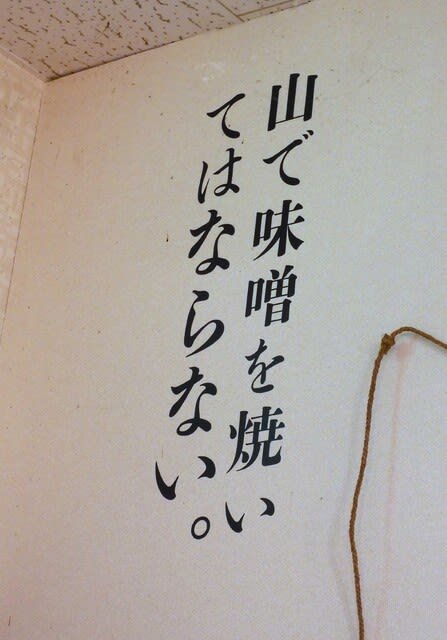 山で味噌を焼い
てはならない。